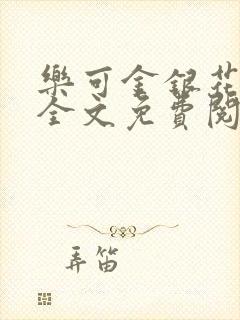 樂可金銀花
全文免費閱
弄笛